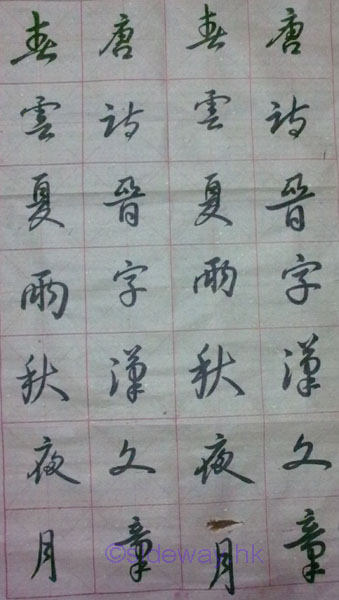 唐詩晉字漢文章
春雲夏雨秋夜月
唐詩晉字漢文章
春雲夏雨秋夜月
©sideway.hk